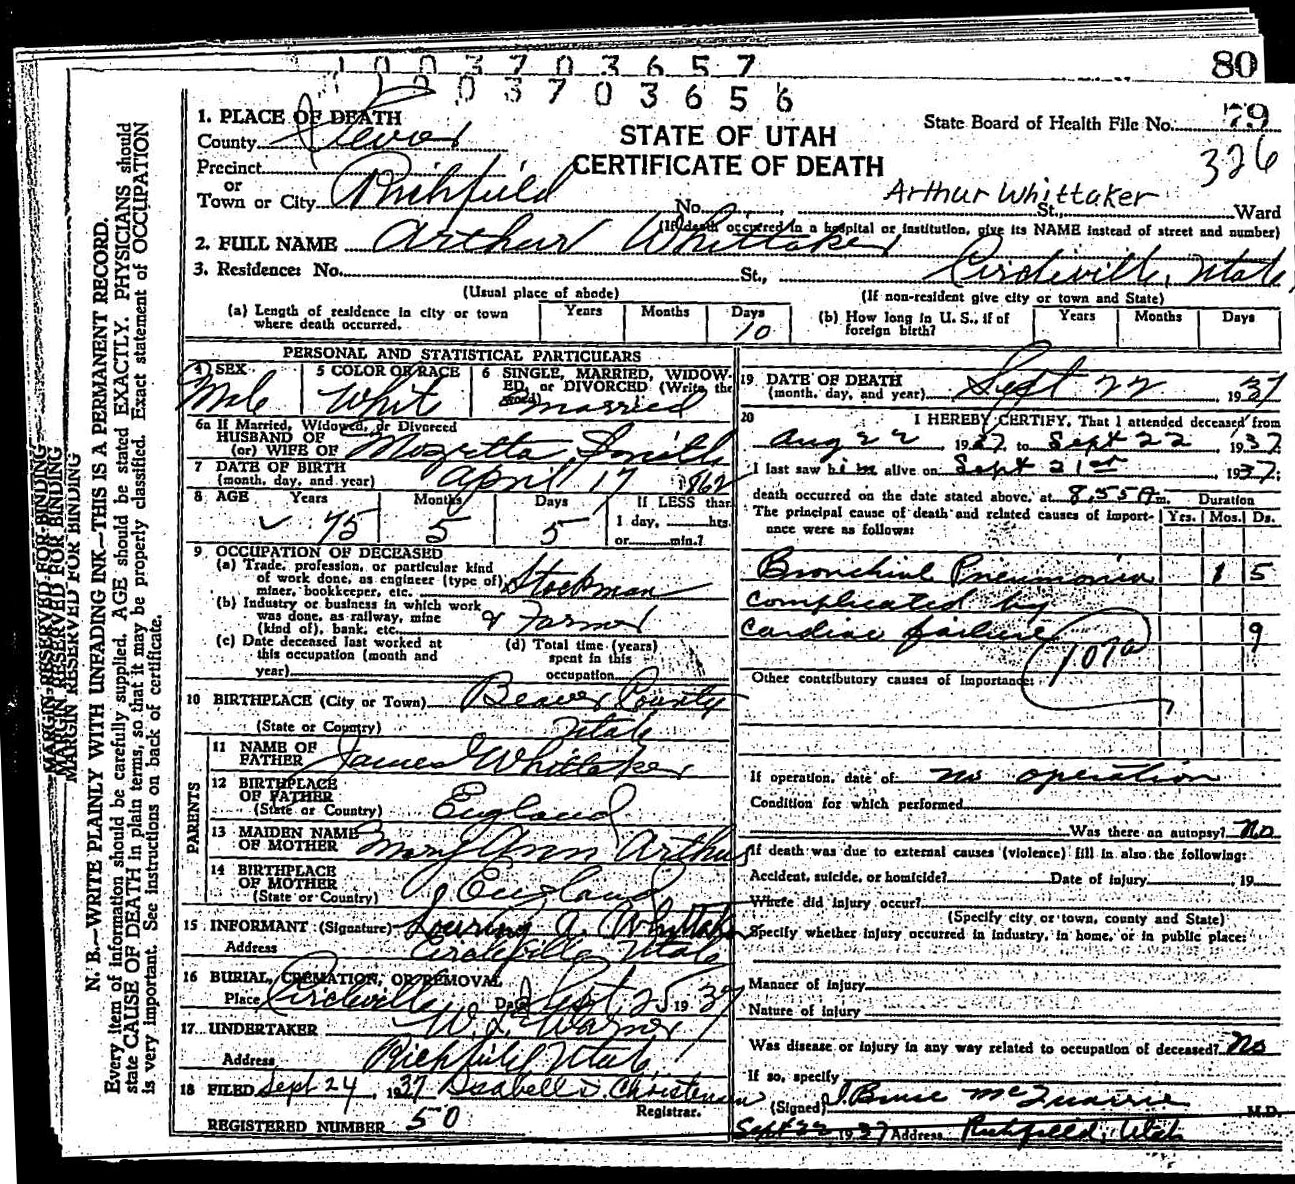 80
1 0 0 3 7 0 3 6 5 7
1 0 0 3 7 0 3 6 5 6
State Board of Health File No. 79
326
STATE OF UTAH
CERTIFICATE OF DEATH
1. PLACE OF DEATH
County Sevier
Precinct
or
Town or City Richfield
No. St., Ward
Arthur Whittaker
(If death occurred in a hospital or institution, give its NAME instead of street and number)
2. FULL NAME Arthur Whittaker
3. Residence: No. St., Circleville, Utah
(Usual place of abode) (If non-resident give city or town and State)
(a) Length of residence in city or town where death occurred. Years Months Days 10
(b) How long in U. S., if of foreign birth? Years Months Days
PERSONAL AND STATISTICAL PARTICULARS
4 SEX Male
5 COLOR OR RACE White
6 SINGLE, MARRIED, WIDOWED, or DIVORCED (Write the word) married
6a If Married, Widowed, or Divorced
HUSBAND OF
(or) WIFE OF Mozetta Smith
7 DATE OF BIRTH
(month, day, and year) April 17 1862
8 AGE Years 75 Months 5 Days 5 If LESS than
1 day, hrs.
or min.?
9 OCCUPATION OF DECEASED
(a) Trade, profession, or particular kind
of work done, as engineer (type of),
miner, bookkeeper, etc. Stockman
(b) Industry or business in which work
was done, as railway, mine
(kind of), bank, etc. & Farmer
(c) Date deceased last worked at
this occupation (month and
year)
(d) Total time (years)
spent in this
occupation
10 BIRTHPLACE (City or Town) Beaver County
(State or Country) Utah
PARENTS
11 NAME OF
FATHER James Whittaker
12 BIRTHPLACE
OF FATHER
(State or Country) England
13 MAIDEN NAME
OF MOTHER Mary Ann Arthur
14 BIRTHPLACE
OF MOTHER
(State or Country) England
15 INFORMANT (Signature) A. Whittaker
Address Circleville, Utah
16 BURIAL, CREMATION, OR REMOVAL
Place Circleville Date Sept 25 1937
17 UNDERTAKER W. L. Warner
Address Richfield, Utah
18 FILED Sept 24, 1937 Isabell S. Christensen
Registrar.
REGISTERED NUMBER 50
19 DATE OF DEATH
(month, day, and year) Sept 22 1937
20 I HEREBY CERTIFY, That I attended deceased from
Aug 22 1937 to Sept 22 1937
I last saw him alive on Sept 21st 1937;
death occurred on the date stated above, at 8.55 A m. Duration
The principal cause of death and related causes of importance were as follows: Yrs. Mos. Ds.
Bronchial Pneumonia 1 5
complicated by
cardiac failure 9
107a
Other contributory causes of importance:
If operation, date of no operation
Condition for which performed
Was there an autopsy? No
If death was due to external causes (violence) fill in also the following:
Accident, suicide, or homicide? Date of injury , 19
Where did injury occur?
(Specify city or town, county and State)
Specify whether injury occurred in industry, in home, or in public place:
Manner of injury
Nature of injury
Was disease or injury in any way related to occupation of deceased? No
If so, specify
(Signed) J. Bruce McQuarrie M.D.
Sept 22 1937 Address Richfield, Utah
MARGIN RESERVED FOR BINDING
MARGIN RESERVED FOR BINDING
MARGIN RESERVED FOR BINDING
N. B.—WRITE PLAINLY WITH UNFADING INK—THIS IS A PERMANENT RECORD.
Every item of information should be carefully supplied. AGE should be stated EXACTLY. PHYSICIANS should
state CAUSE OF DEATH in plain terms, so that it may be properly classified. Exact statement of OCCUPATION
is very important. See instructions on back of certificate.